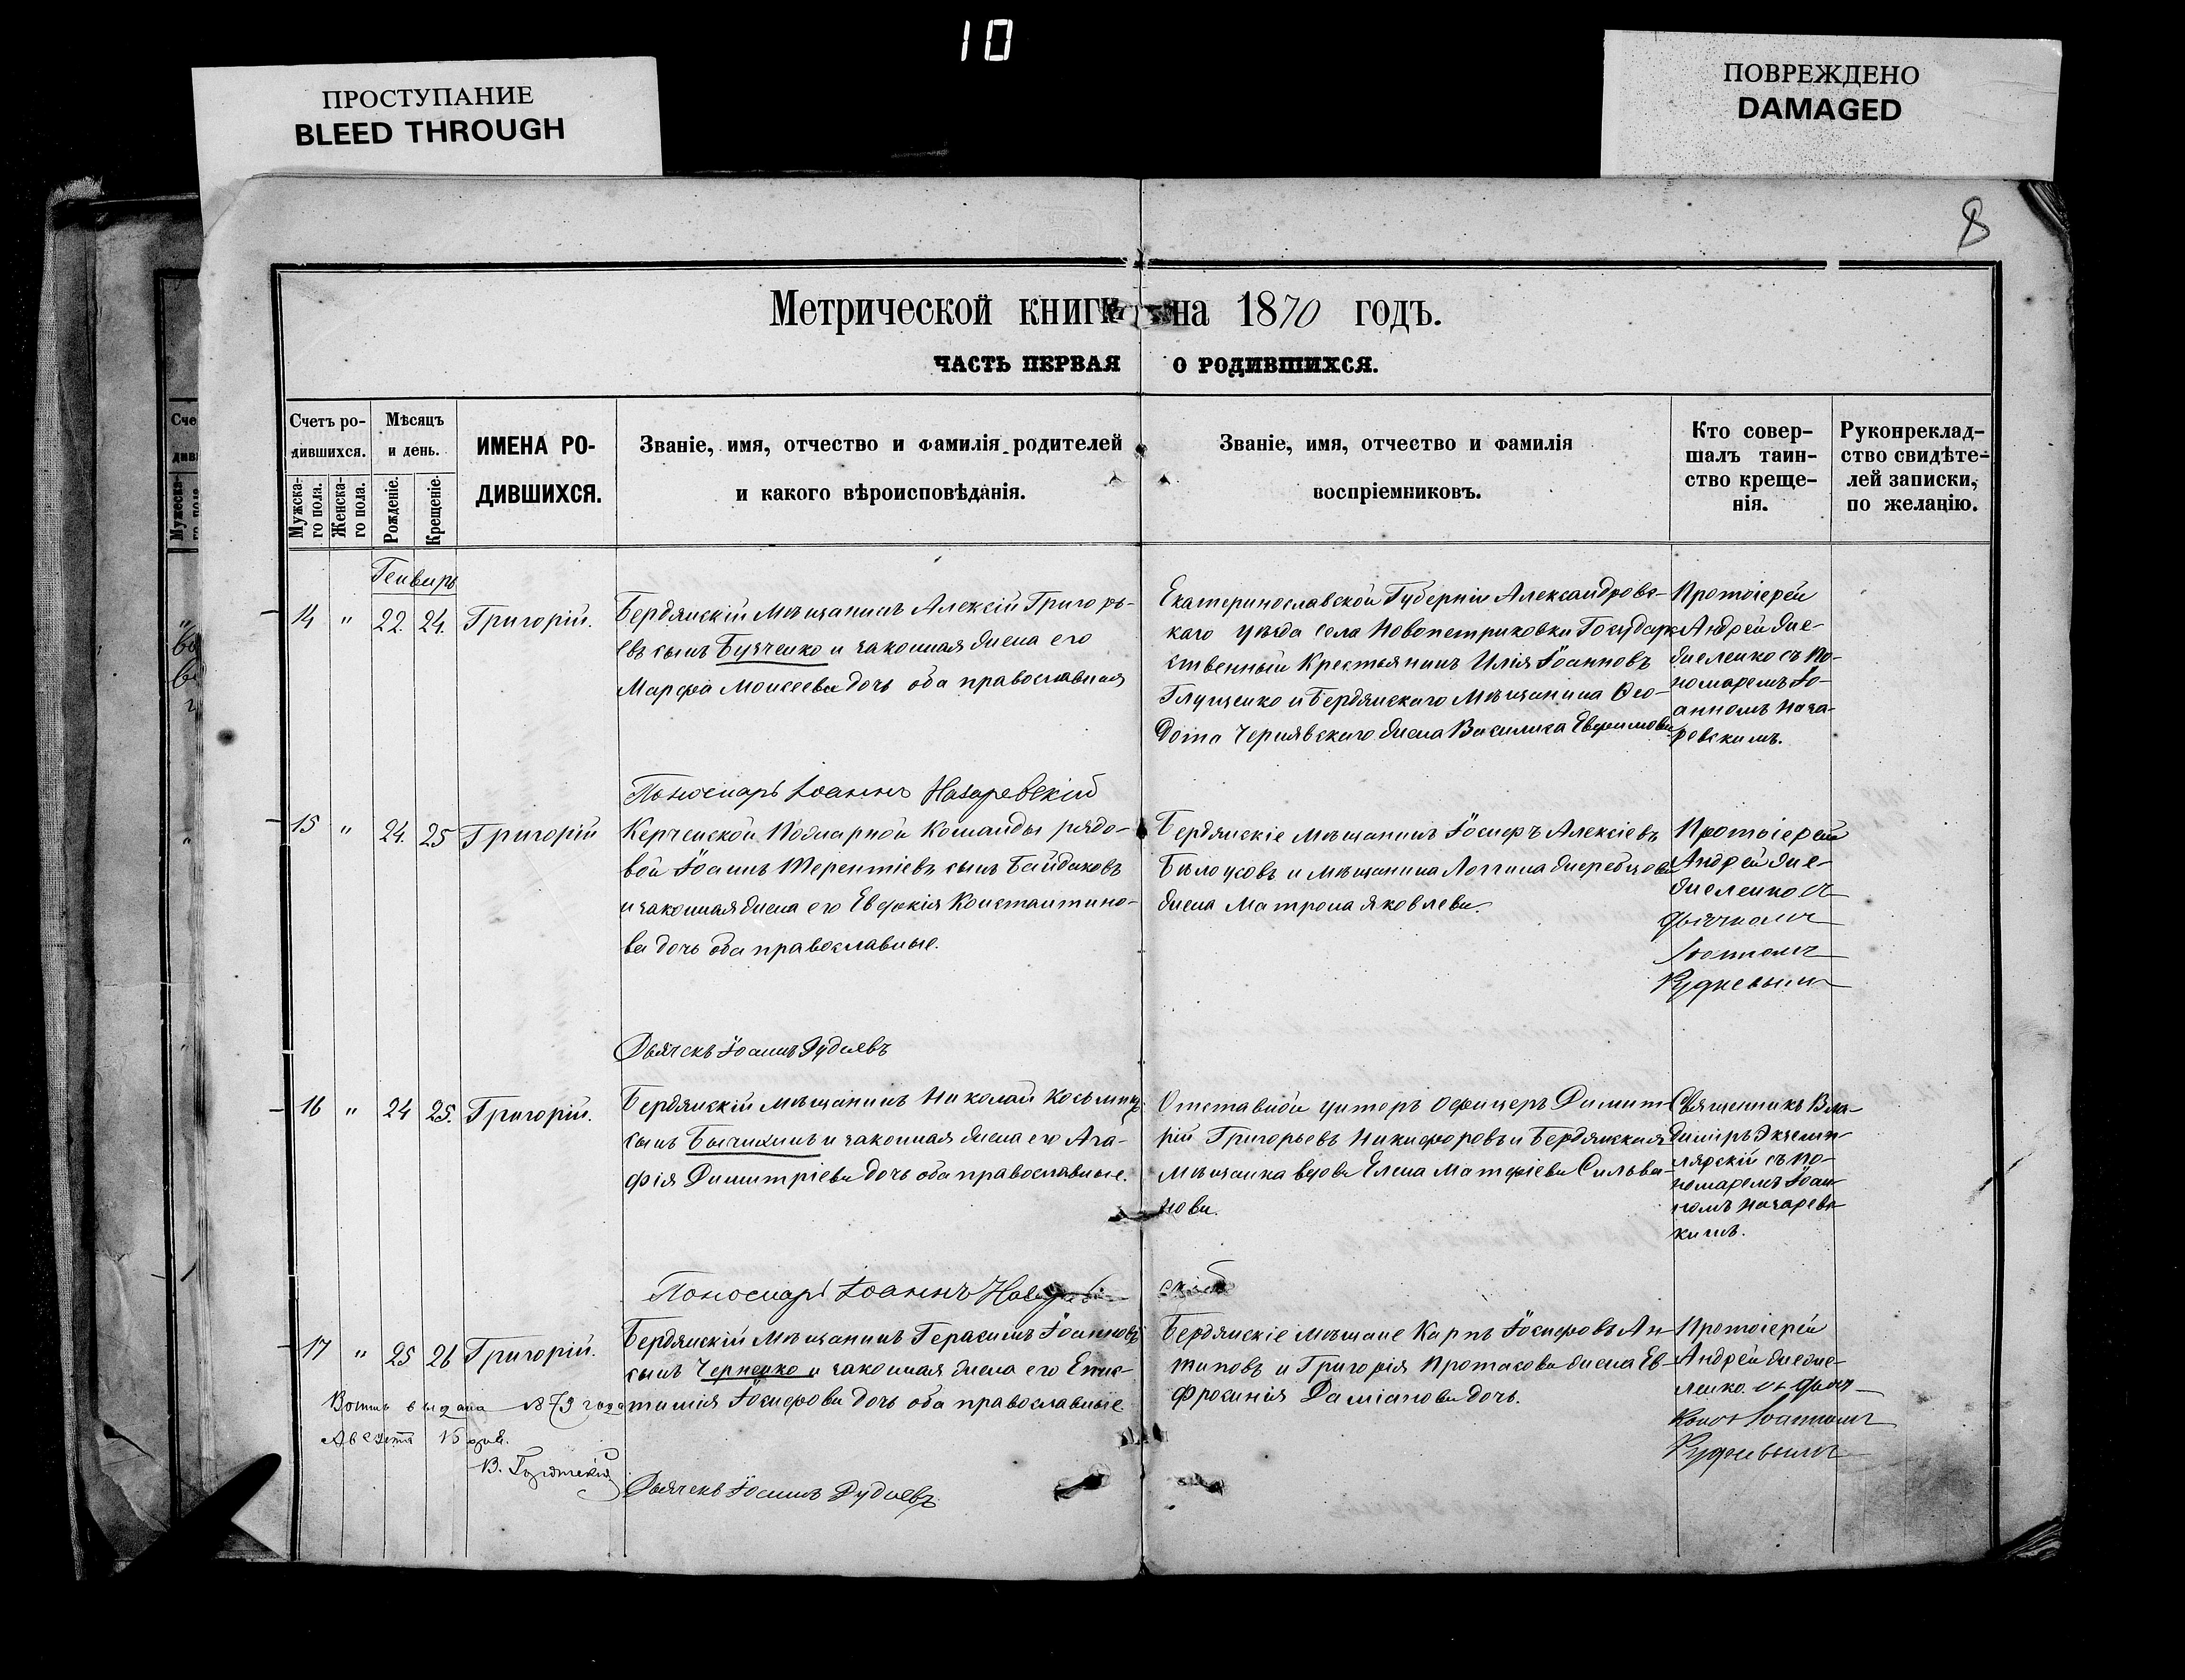 10
ПРОСТУПАНИЕ
BLEED THROUGH
ПОВРЕЖДЕНО
DAMAGED
8
Метрической книги на 1870 годъ.
ЧАСТЬ ПЕРВАЯ О РОДИВШИХСЯ.
Счетъ ро-
дившихся.
Мужска-
го пола.
Женска-
го пола.
Мѣсяцъ
и день.
Рожденіе.
Крещеніе.
ИМЕНА РО-
ДИВШИХСЯ.
Званіе, имя, отчество и фамилія родителей
и какого вѣроисповѣданія.
Званіе, имя, отчество и фамилія
воспріемниковъ.
Кто совер-
шалъ таин-
ство креще-
нія.
Рукоприклад-
ство свидѣте-
лей записки,
по желанію.
Генваръ
14 " 22. 24. Григорій.
Бердянскій мѣщанинъ Алексій Григорь-
евъ сынъ и законная жена его
Марфа Моисеева дочь оба православная
Екатеринославской Губерніи Александровс-
каго уѣзда села Новопетриковки Государ-
ственный Крестьянинъ Илія Іоанновъ
Глущенко и Бердянскаго Мѣщанина Ѳео-
дота Чернявскаго жена Василиса Евфимова
Протоіерей
Андрей Же-
желенко съ По-
номаремъ Іо-
анномъ Наза-
ревскимъ.
Пономарь Іоаннъ Назаревскій
15 " 24. 25 Григорій
Керченской Пожарной Команды рядо-
вой Іоаннъ Терентіевъ сынъ Байдаковъ
и законная жена его Евфокія Константино-
ва дочь оба православные.
Бердянскіе мѣщанинъ Іосифъ Алексіевъ
Бѣлоусовъ и мѣщанина Логгина Жеребцова
жена Матрона Яковлева.
Протоіерей
Андрей Же-
желенко съ
дьячкомъ
Іоанномъ
Рудневымъ
Дьячекъ Іоаннъ Рудневъ
16 " 24 25. Григорій.
Бердянскій мѣщанинъ Николай Косьминъ
сынъ Бычихинъ и законная жена его Ага-
фія Димитріева дочь оба православные.
Отставной унтеръ офицеръ Димит-
рій Григорьевъ Никифоровъ и Бердянская
мѣщанка вдова Елена Матфіева Сильва-
нова.
Священникъ Вла-
диміръ Экземп-
лярскій съ По-
номаремъ Іоан-
номъ Назаревс-
кимъ.
Пономарь Іоаннъ Назаревскій
17 " 25 26 Григорій.
Бердянскій мѣщанинъ Герасимъ Іоанновъ
сынъ Черненко и законная жена его Епис-
тимія Іосифова дочь оба православные
Бердянскіе мѣщане Карпъ Іосифовъ Ан-
типовъ и Григорія Протасова жена Ев-
фросинія Даміанова дочь.
Протоіерей
Андрей Жеже-
ленко съ дьяч-
комъ Іоанномъ
Рудневымъ
выдана 1879 года
Августа 16 дня.
Дьячекъ Іоаннъ Рудневъ